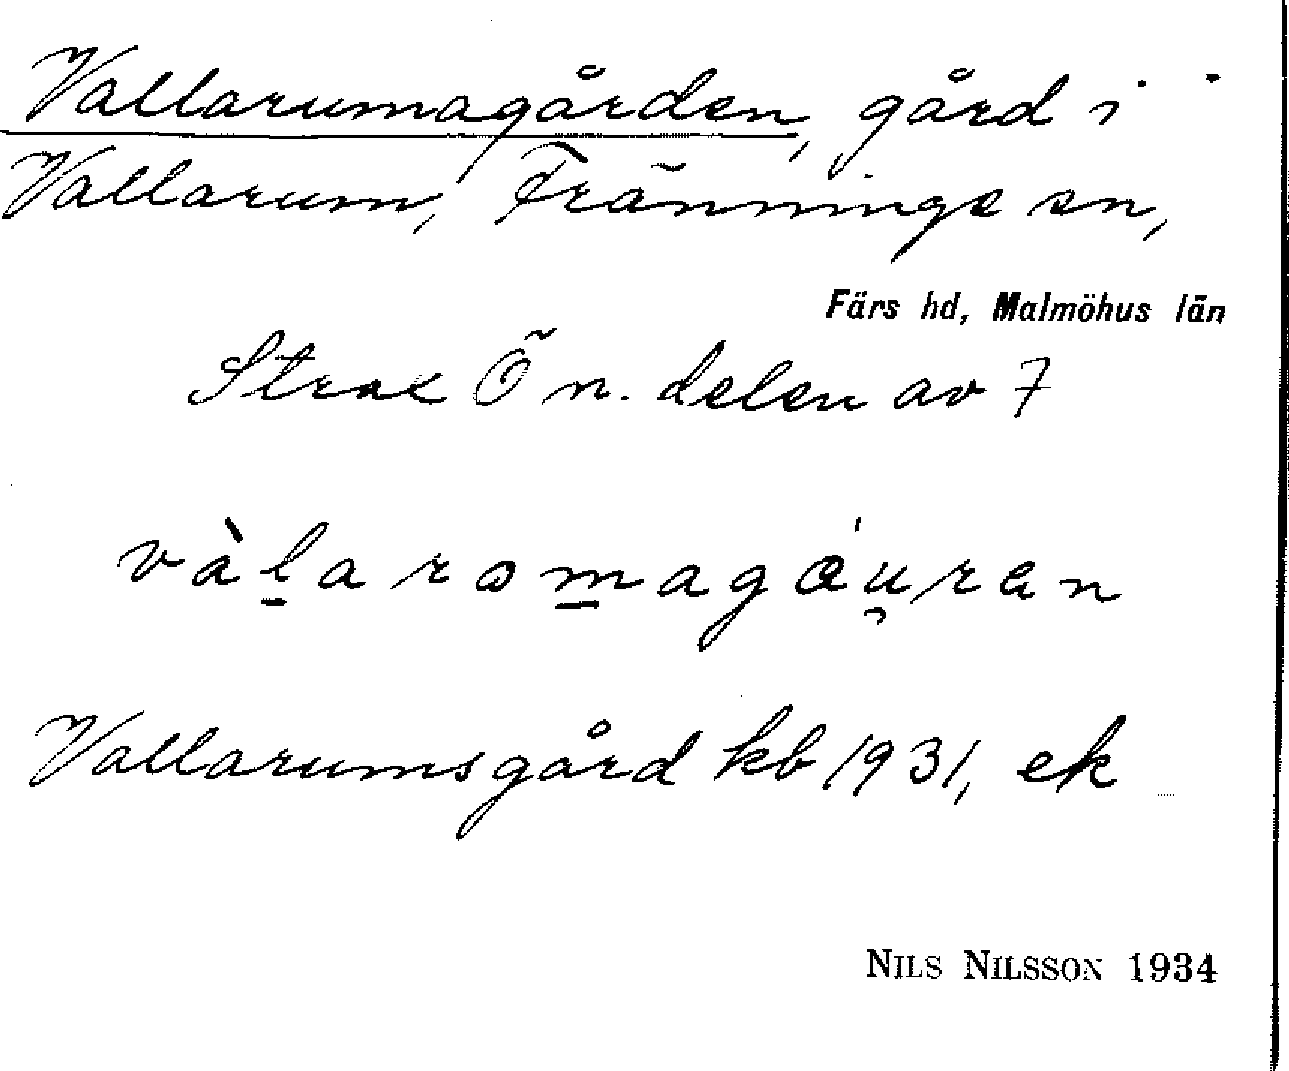 Vallarumagården, gård i
Vallarum, Fränninge sn,
Färs hd, Malmöhus län
Strax Ö n. delen av 7
vàl̠aroma̠gáu̯ran
Vallarumsgård kb 1931, ek
NILS NILSSON 1934